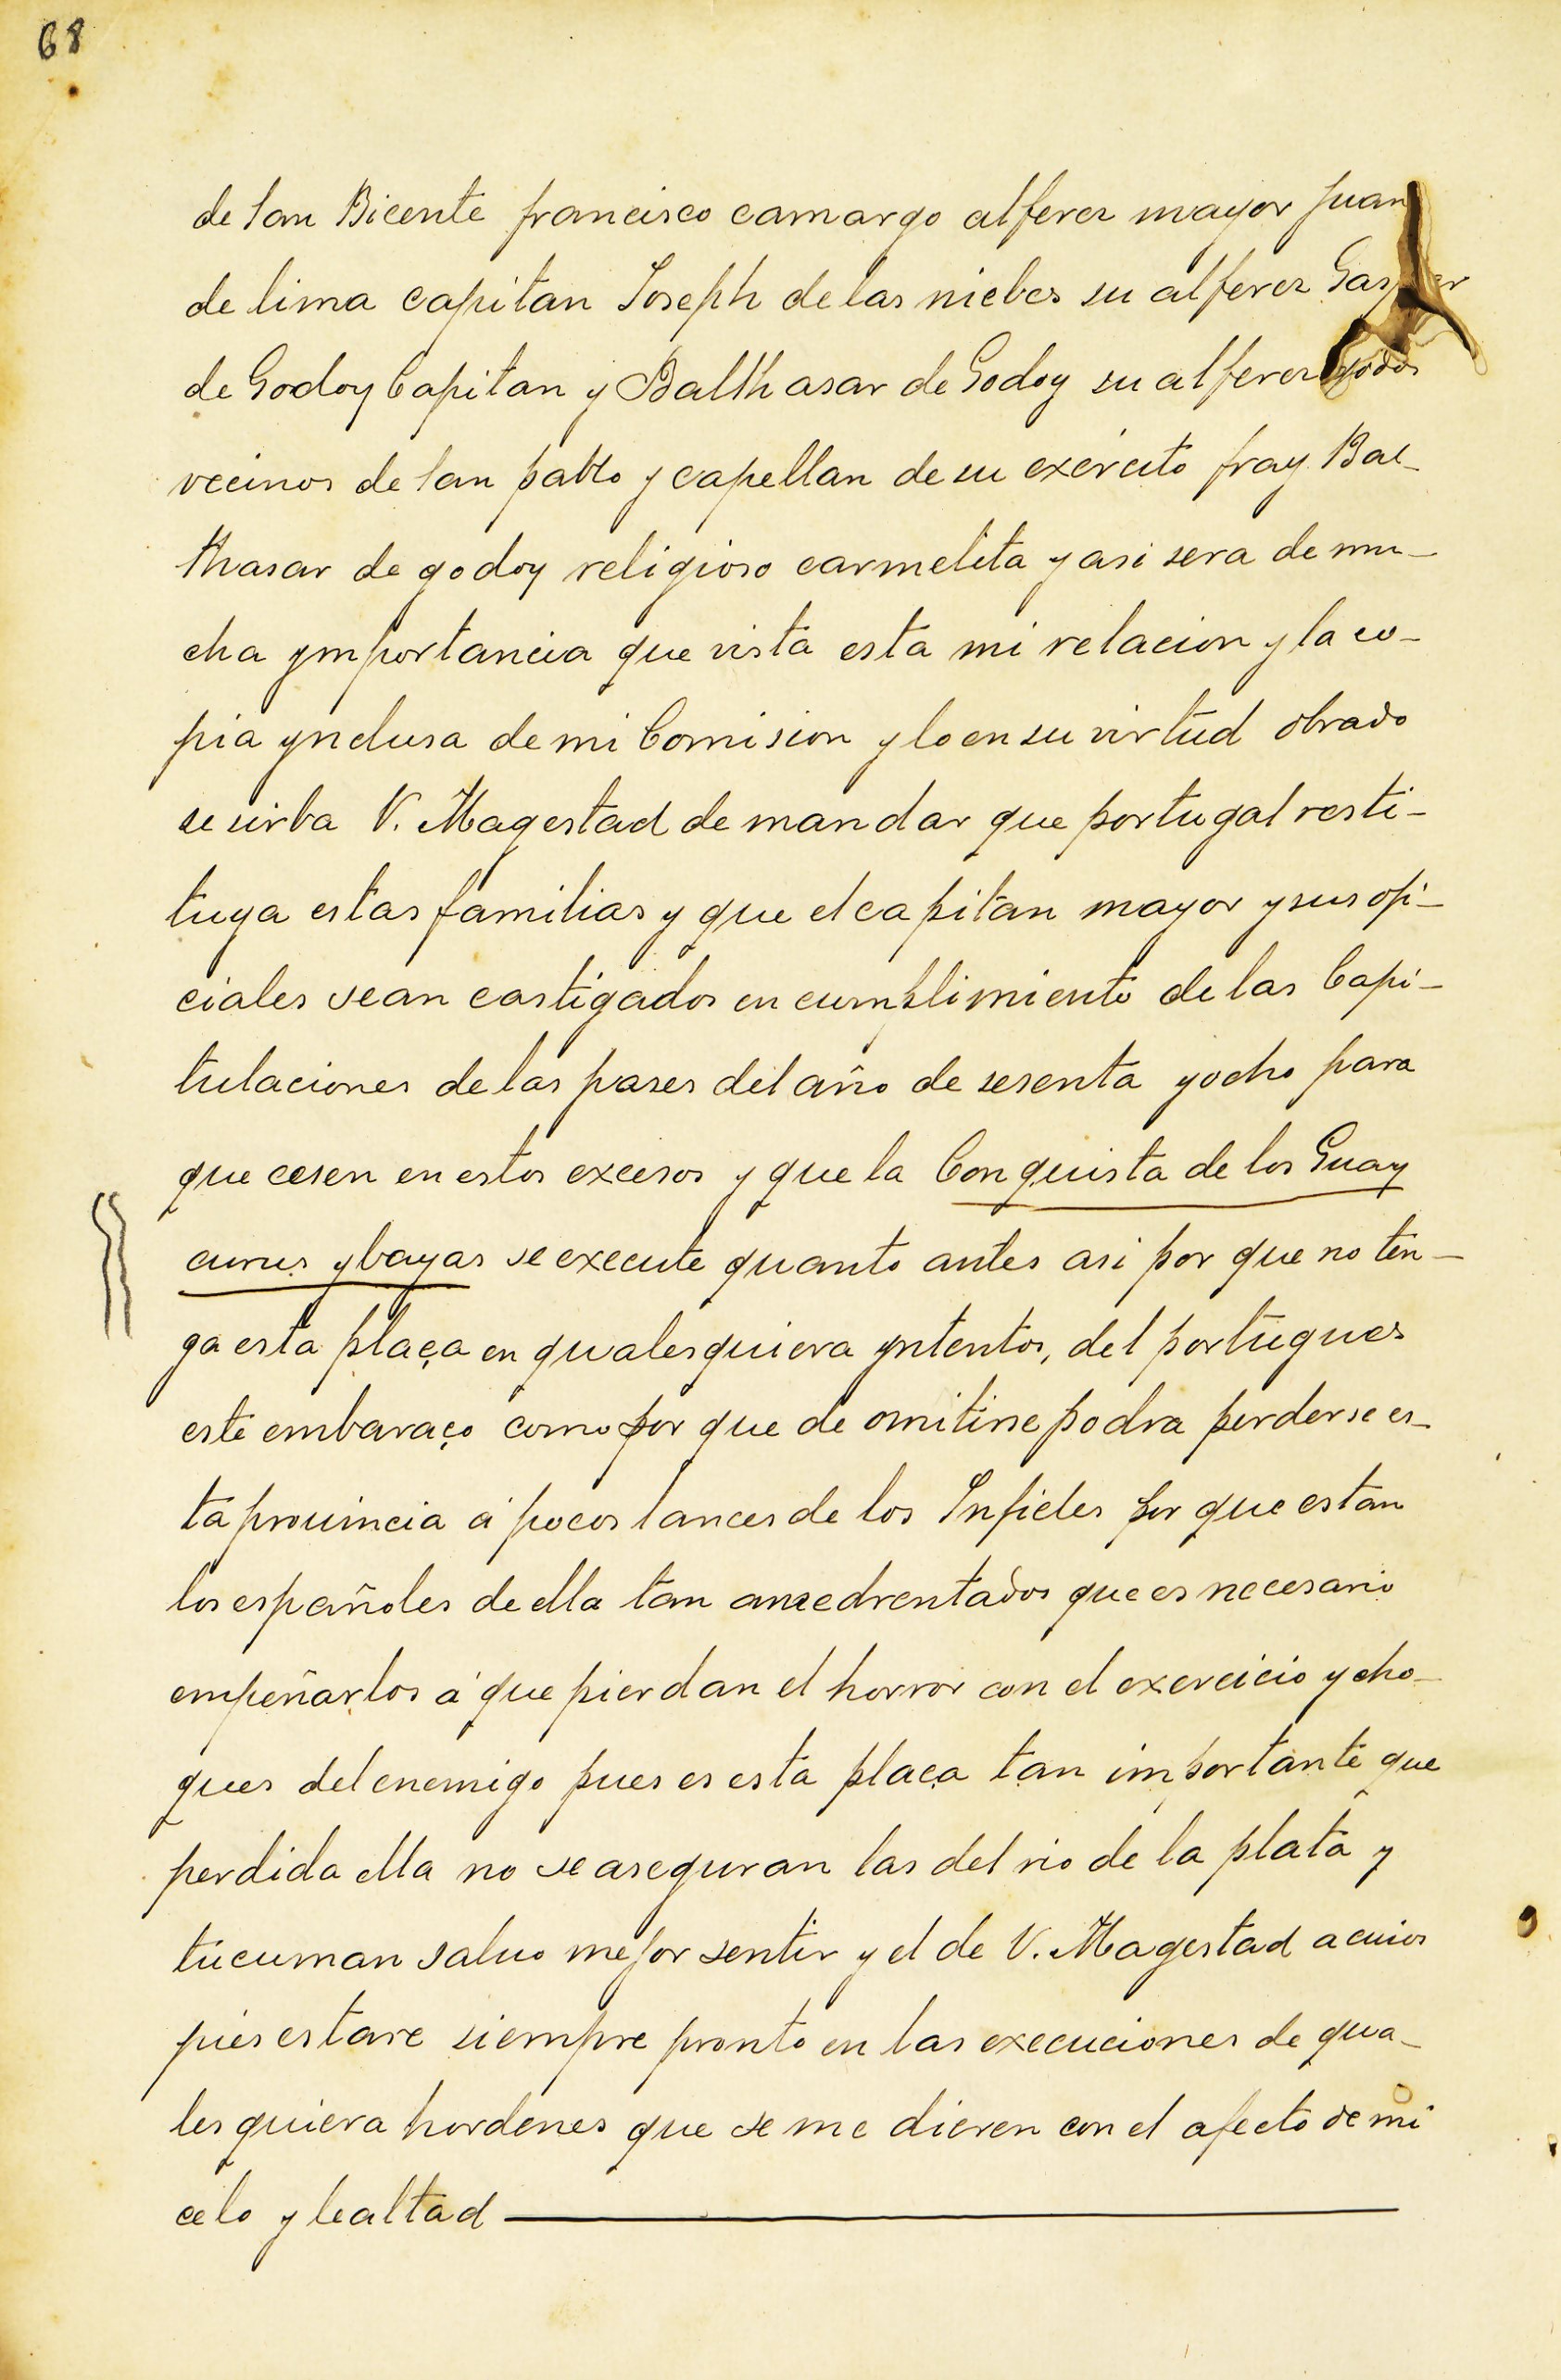 68
de san Bicente francisco camargo alferez mayor Juan
de lima capitan Joseph de las niebes su alferez Gasper
de Godoy Capitan y Balthasar de Godoy su alferez todos
vecinos de san pablo y capellan de su exercito fray Bal-
thasar de godoy religioso carmelita y asi sera de mu-
cha ymportancia que vista esta mi relacion y la co-
pia ynclusa de mi Comision y lo en su virtud obrado
se sirba V. Magestad de mandar que portugal resti-
tuya estas familias y que el capitan mayor y sus ofi-
ciales sean castigados en cumplimiento de las Capi-
tulaciones de las pazes del año de sesenta y ocho para
que cesen en estos excesos y que la Conquista de los Guay
curus ybayas se execute quanto antes asi por que no ten-
ga esta plaça en qualesquiera yntentos, del portugues
este embaraço como por que de omitirse podra perderse es-
ta prouincia á pocos lances de los Infieles por que estan
los españoles de ella tan amedrentados que es necesario
empeñarlos á que pierdan el horror con el exercicio y cho-
ques del enemigo pues es esta plaça tan importante que
perdida ella no se aseguran las del rio de la plata y
tucuman saluo mejor sentir y el de V. Magestad a cuios
pies estare siempre pronto en las execuciones de qua-
lesquiera hordenes que se me dieren con el afecto de mi
celo y lealtad